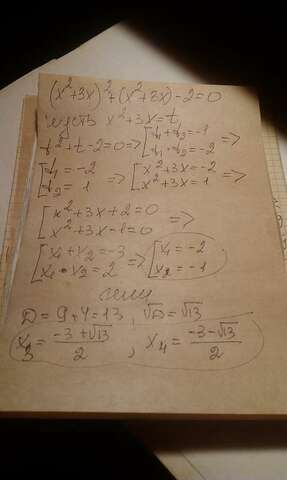 (x²+3x)²+(x²+3x)-2=0
пусть x²+3x=t,
t²+t-2=0=>[t₁+t₂=-1 =>
t₁·t₂=-2
[t₁=-2 => [x²+3x=-2 =>
t₂=1 x²+3x=1
[x²+3x+2=0 =>
x²+3x-1=0
[x₁+x₂=-3 => [x₁=-2
x₁·x₂=2 x₂=-1
или
D=9+4=13, √D=√13
x₃=(-3+√13)/2, x₄=(-3-√13)/2